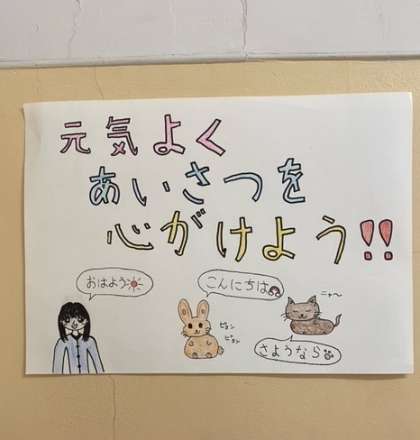 元気よく
あいさつを
心がけよう!!
おはよう
こんにちは
ニャ〜
ピョン
ピョン
さようなら